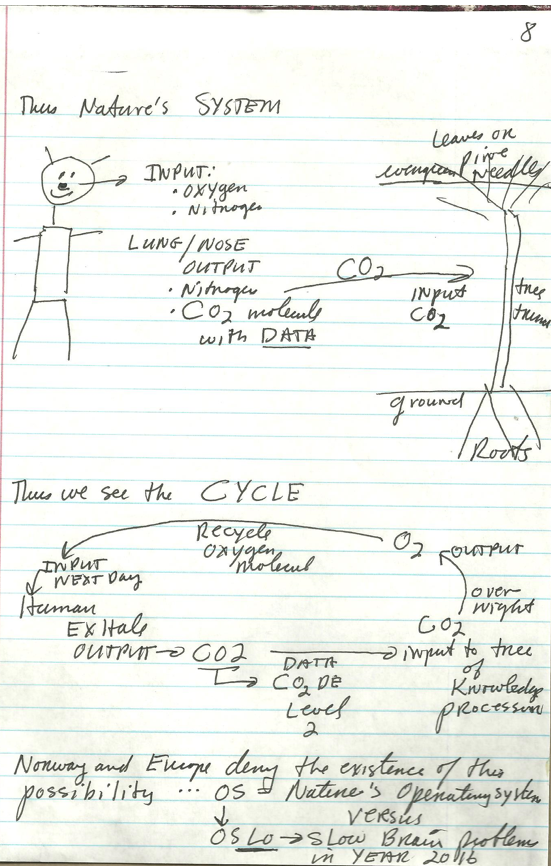 8
Thus Nature's SYSTEM
Leaves or
Pine
evergreen Needles
INPUT:
• OXYgen
• Nitrogen
LUNG/NOSE
OUTPUT
• Nitrogen
• CO2 molecule
with DATA
CO2
INPUT
CO2
tree
trunk
ground
Roots
Thus we see the CYCLE
Recycle
Oxygen
molecul
O2
OUTPUT
INPUT
NEXT Day
Human
EXHale
OUTPUT → CO2
DATA
CO2DE
Level
2
over
night
CO2
input to tree
of
Knowledge
processing
Norway and Europe deny the existence of this
possibility ... OS = Nature's Operating system
VERSUS
OSLO → SLOW Brain problem
in YEAR 2016